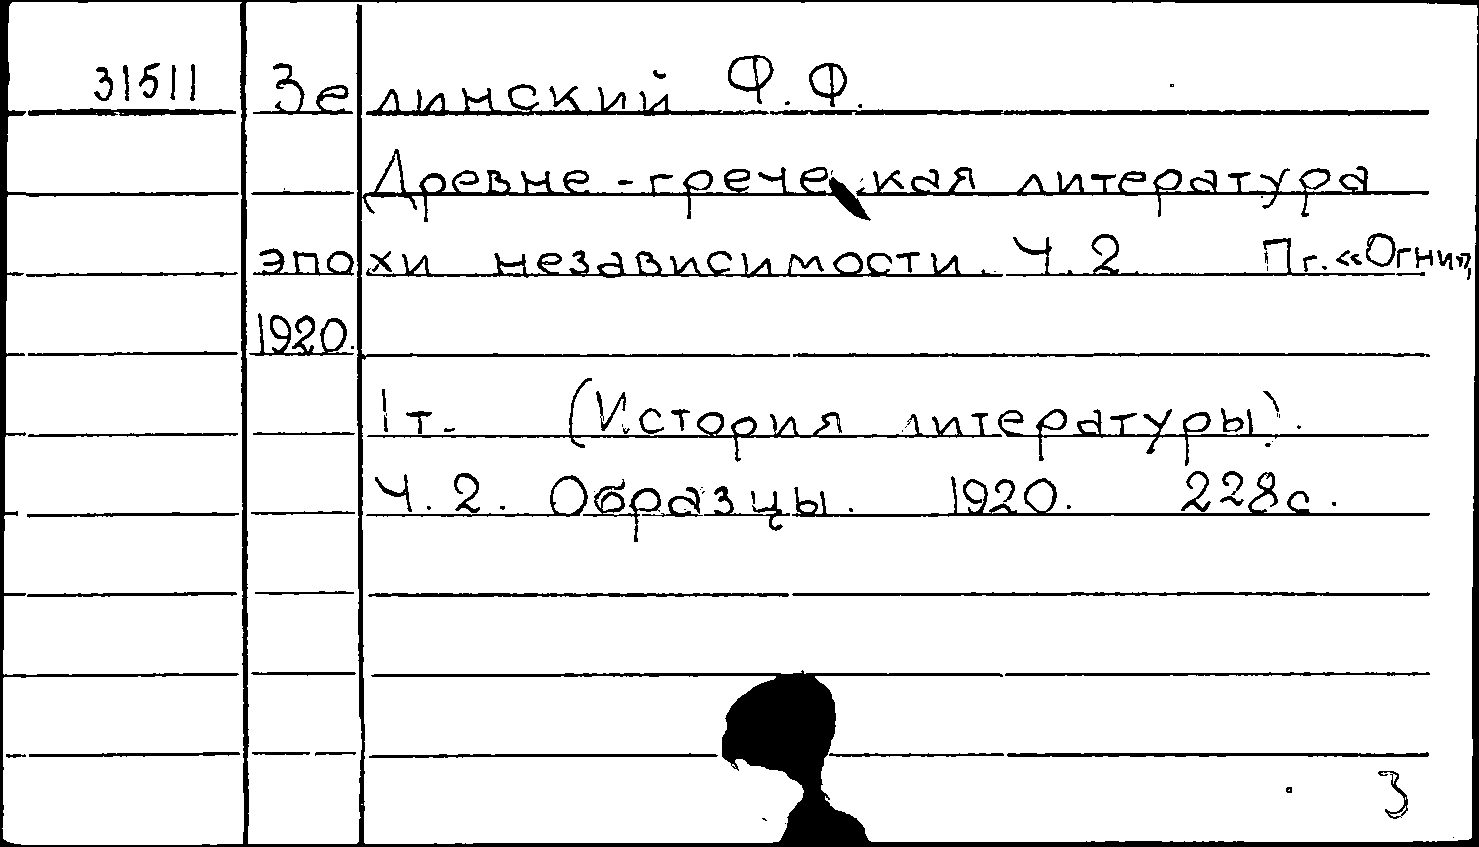 31511 Зелинский Ф.Ф.
Древне-греческая литература
эпохи независимости. Ч.2 Пг. «Огни»,
1920.
1т. (История литературы).
Ч.2. Образцы. 1920. 228с.
З